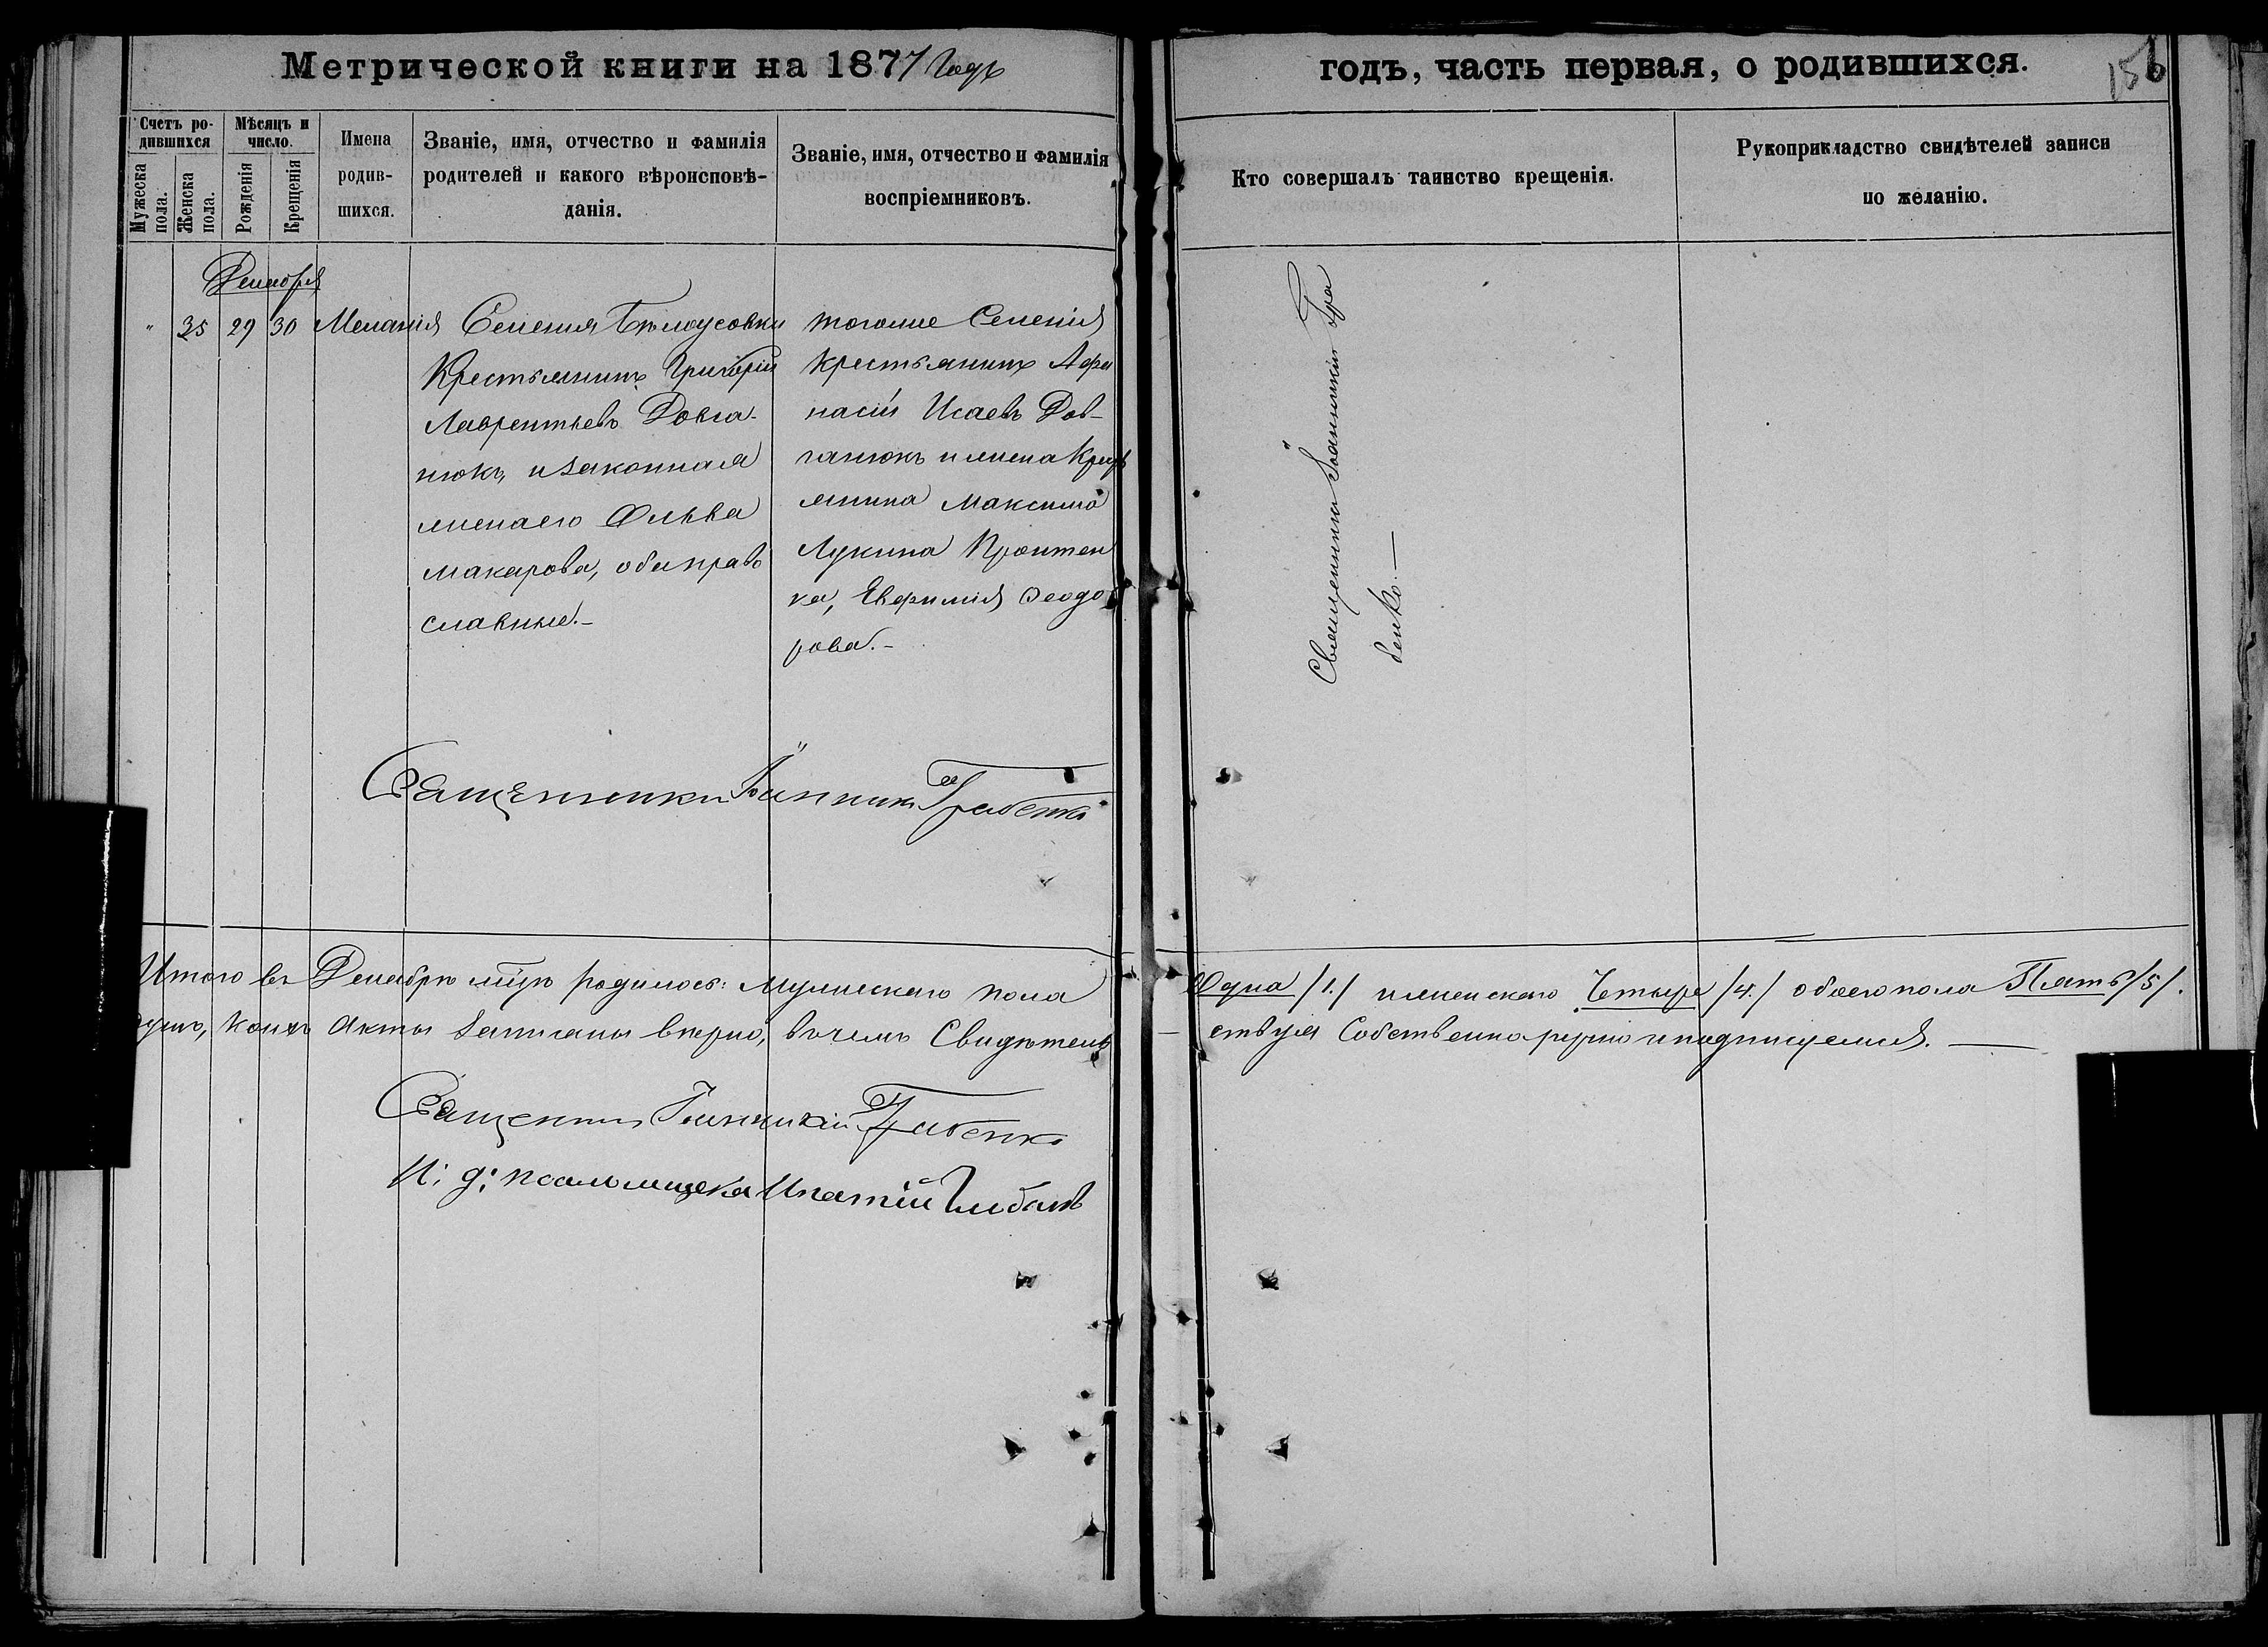 Метрической книги на 1877 Годъ
годъ, часть первая, о родившихся.
156
Счетъ ро-
дившихся
Мужеска пола.
Женска пола.
Мѣсяцъ и
число.
Рожденія
Крещенія
Имена
родив-
шихся.
Званіе, имя, отчество и фамилія
родителей и какого вѣроисповѣ-
данія.
Званіе, имя, отчество и фамилія
воспріемниковъ.
Кто совершалъ таинство крещенія.
Рукоприкладство свидѣтелей записи
по желанію.
Декабрь
" 35 29 30 Меланія
Селенія Бѣлоусовки
Крестьянинъ Григорій
Лаврентьевъ Довга-
нюкъ, и законная
жена его Ольга
Макарова, оба право
славные.-
тогоже Селенія
Крестьянинъ Афа
насій Исаевъ Дов-
ганюкъ и жена Кресть
янина Максима
Лукина
ка, Евфимія Феодо
рова.-
Священникъ Іоанникій Гра
бенко.—
Священникъ Іоанникій Грабенко
Итого въ Декабрѣ м-цѣ родилось: Мужескаго пола Одна /1./ и женскаго Четыре /4./ обоего пола Пять /5/.
душъ, коихъ Акты Записаны вѣрно, въ чемъ Свидѣтель ствуя Собственноручно и подписуемся.—
Священникъ Іоанникій Грабенко
И: д: псаломщика Ипатій